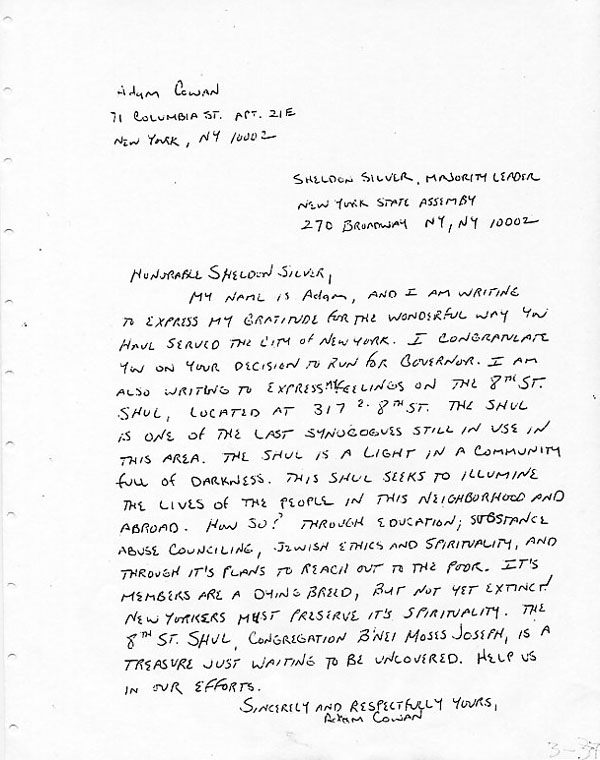 Adam Cowan
71 Columbia St. Apt. 21E
New York, NY 10002
Sheldon Silver, Majority Leader
New York State Assembly
270 Broadway NY, NY 10002
Honorable Sheldon Silver,
My name is Adam, and I am writing
to express my gratitude for the wonderful way you
have served the city of New York. I congratulate
you on your decision to run for Governor. I am
also writing to express my feelings on the 8th St.
Shul, located at 317 E. 8th St. The Shul
is one of the last synogogues still in use in
this area. The Shul is a light in a community
full of darkness. This Shul seeks to illumine
the lives of the people in this neighborhood and
abroad. How so? Through education; substance
abuse counciling, Jewish ethics and spirituality, and
through it's plans to reach out to the poor. It's
members are a dying breed, but not yet extinct!
New Yorkers must preserve it's spirituality. The
8th St. Shul, Congregation B'nei Moses Joseph, is a
treasure just waiting to be uncovered. Help us
in our efforts.
Sincerily and Respectfully yours,
Adam Cowan